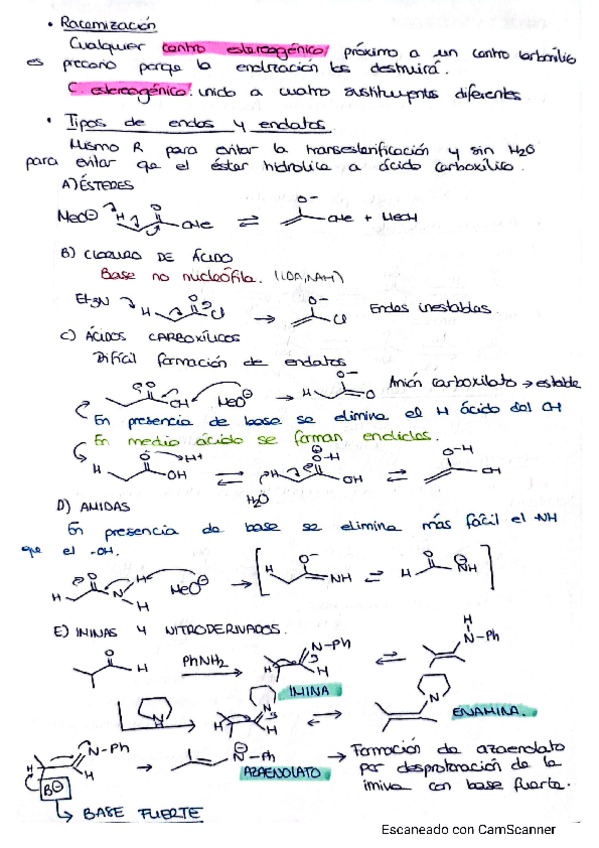 • Racemización
Cualquier centro estereogénico próximo a un centro carbonílico
es precario porque la enolización los destruirá.
C. estereogénico: unido a cuatro sustituyentes diferentes
• Tipos de enoles y enolatos.
Mismo R para evitar la transesterificación y sin H2O
para evitar que el éster hidrolice a ácido carboxílico.
A) ÉSTERES
MeO⊖ H O OMe ⇌ O- OMe + MeOH
B) CLORURO DE ÁCIDO
Base no nucleófila. (LDA, NaH)
Et3N H O Cl → O- Cl Enoles inestables.
C) ÁCIDOS CARBOXÍLICOS
Difícil formación de enolatos
O OH MeO⊖ → H O- O Anión carboxilato → estable
En presencia de base se elimina el H ácido del OH
En medio ácido se forman enoles.
H O H+ OH ⇌ H O-H OH ⇌ O-H OH
H2O
D) AMIDAS
En presencia de base se elimina más fácil el -NH
que el -OH.
H O N H H MeO⊖ → [ H O- NH ⇌ H O NH ]
E) IMINAS Y NITRODERIVADOS.
O H PhNH2 → H N-Ph H ⇌ H N-Ph
IMINA
N H → H N H ↔ N
ENAMINA.
H N-Ph H → N-Ph → Formación de azaenolato
AZAENOLATO por desprotonación de la
B⊖ imina con base fuerte.
↳ BASE FUERTE
Escaneado con CamScanner